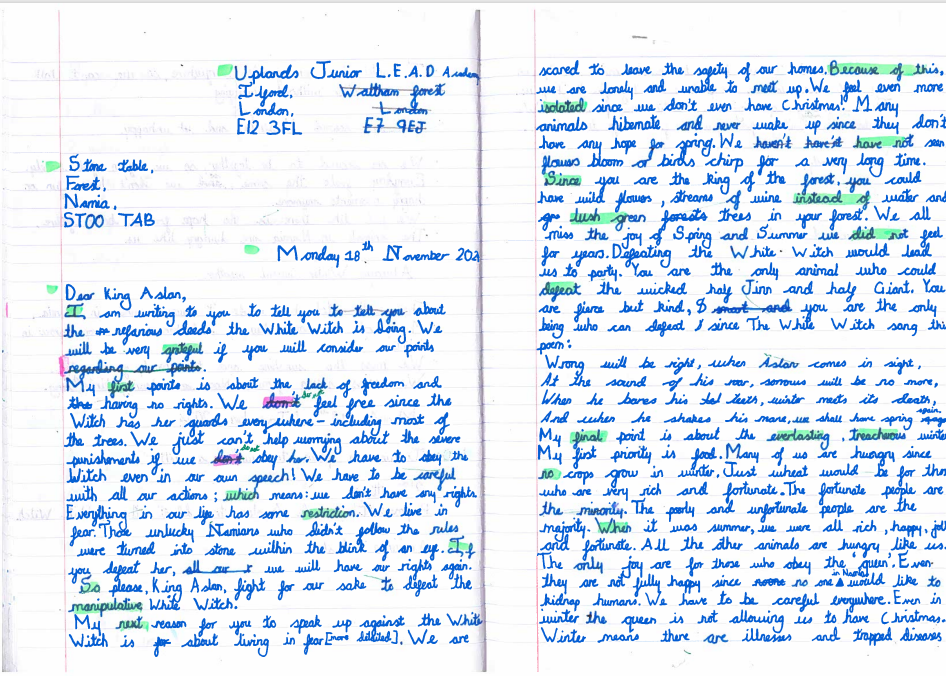 Uplands Junior L.E.A.D Academy
Ilford, Waltham forest
London, London
E12 3FL E7 9EJ
Stone table,
Forest,
Narnia,
ST00 TAB
Monday 18th November 202
Dear King Aslan,
I am writing to you to tell you to tell you about
the nefarious deeds the White Witch is doing. We
will be very grateful if you will consider our points
regarding our points.
My first points is about the lack of freedom and
the having no rights. We don't do not feel free since the
Witch has her guards everywhere - including most of
the trees. We just can't help worrying about the severe
punishments if we don't do not obey her. We have to obey the
Witch even in our own speech! We have to be careful
with all our actions; which means: we don't have any rights.
Everything in our life has some restriction. We live in
fear. Those unlucky Narnians who didn't follow the rules
were turned into stone within the blink of an eye. If
you defeat her, all our we will have our rights again.
So please, King Aslan, fight for our sake to defeat the
manipulative White Witch.
My next reason for you to speak up against the White
Witch is for about living in fear [more detailed]. We are
scared to leave the safety of our homes. Because of this,
we are lonely and unable to meet up. We feel even more
isolated since we don't even have Christmas! Many
animals hibernate and never wake up since they don't
have any hope for spring. We haven't have not seen
flowers bloom or birds chirp for a very long time.
Since you are the king of the forest, you could
have wild flowers, streams of wine instead of water and
lush green forests trees in your forest. We all
miss the joy of Spring and Summer we did not feel
for years. Defeating the White Witch would lead
us to party. You are the only animal who could
defeat the wicked half Jinn and half Giant. You
are fierce but kind, & smart and you are the only
being who can defeat since The White Witch sang the
poem:
Wrong will be right, when Aslan comes in sight,
At the sound of his roar, sorrows will be no more,
When he bares his teeth, winter meets its death,
And when he shakes his mane, we shall have spring again.
My final point is about the everlasting, treacherous winter
My first priority is food. Many of us are hungry since
no crops grow in winter. Just wheat would be for those
who are very rich and fortunate. The fortunate people are
the minority. The poorly and unfortunate people are the
majority. When it was summer, we were all rich, happy, jolly
and fortunate. All the other animals are hungry like us.
The only joy are for those who obey the queen. Even
they are not fully happy since no one in Narnia would like to
kidnap humans. We have to be careful everywhere. Even in
winter the queen is not allowing us to have Christmas.
Winter means there are illnesses and trapped diseases